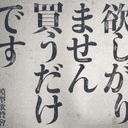 欲しがり
ません
買うだけ
です